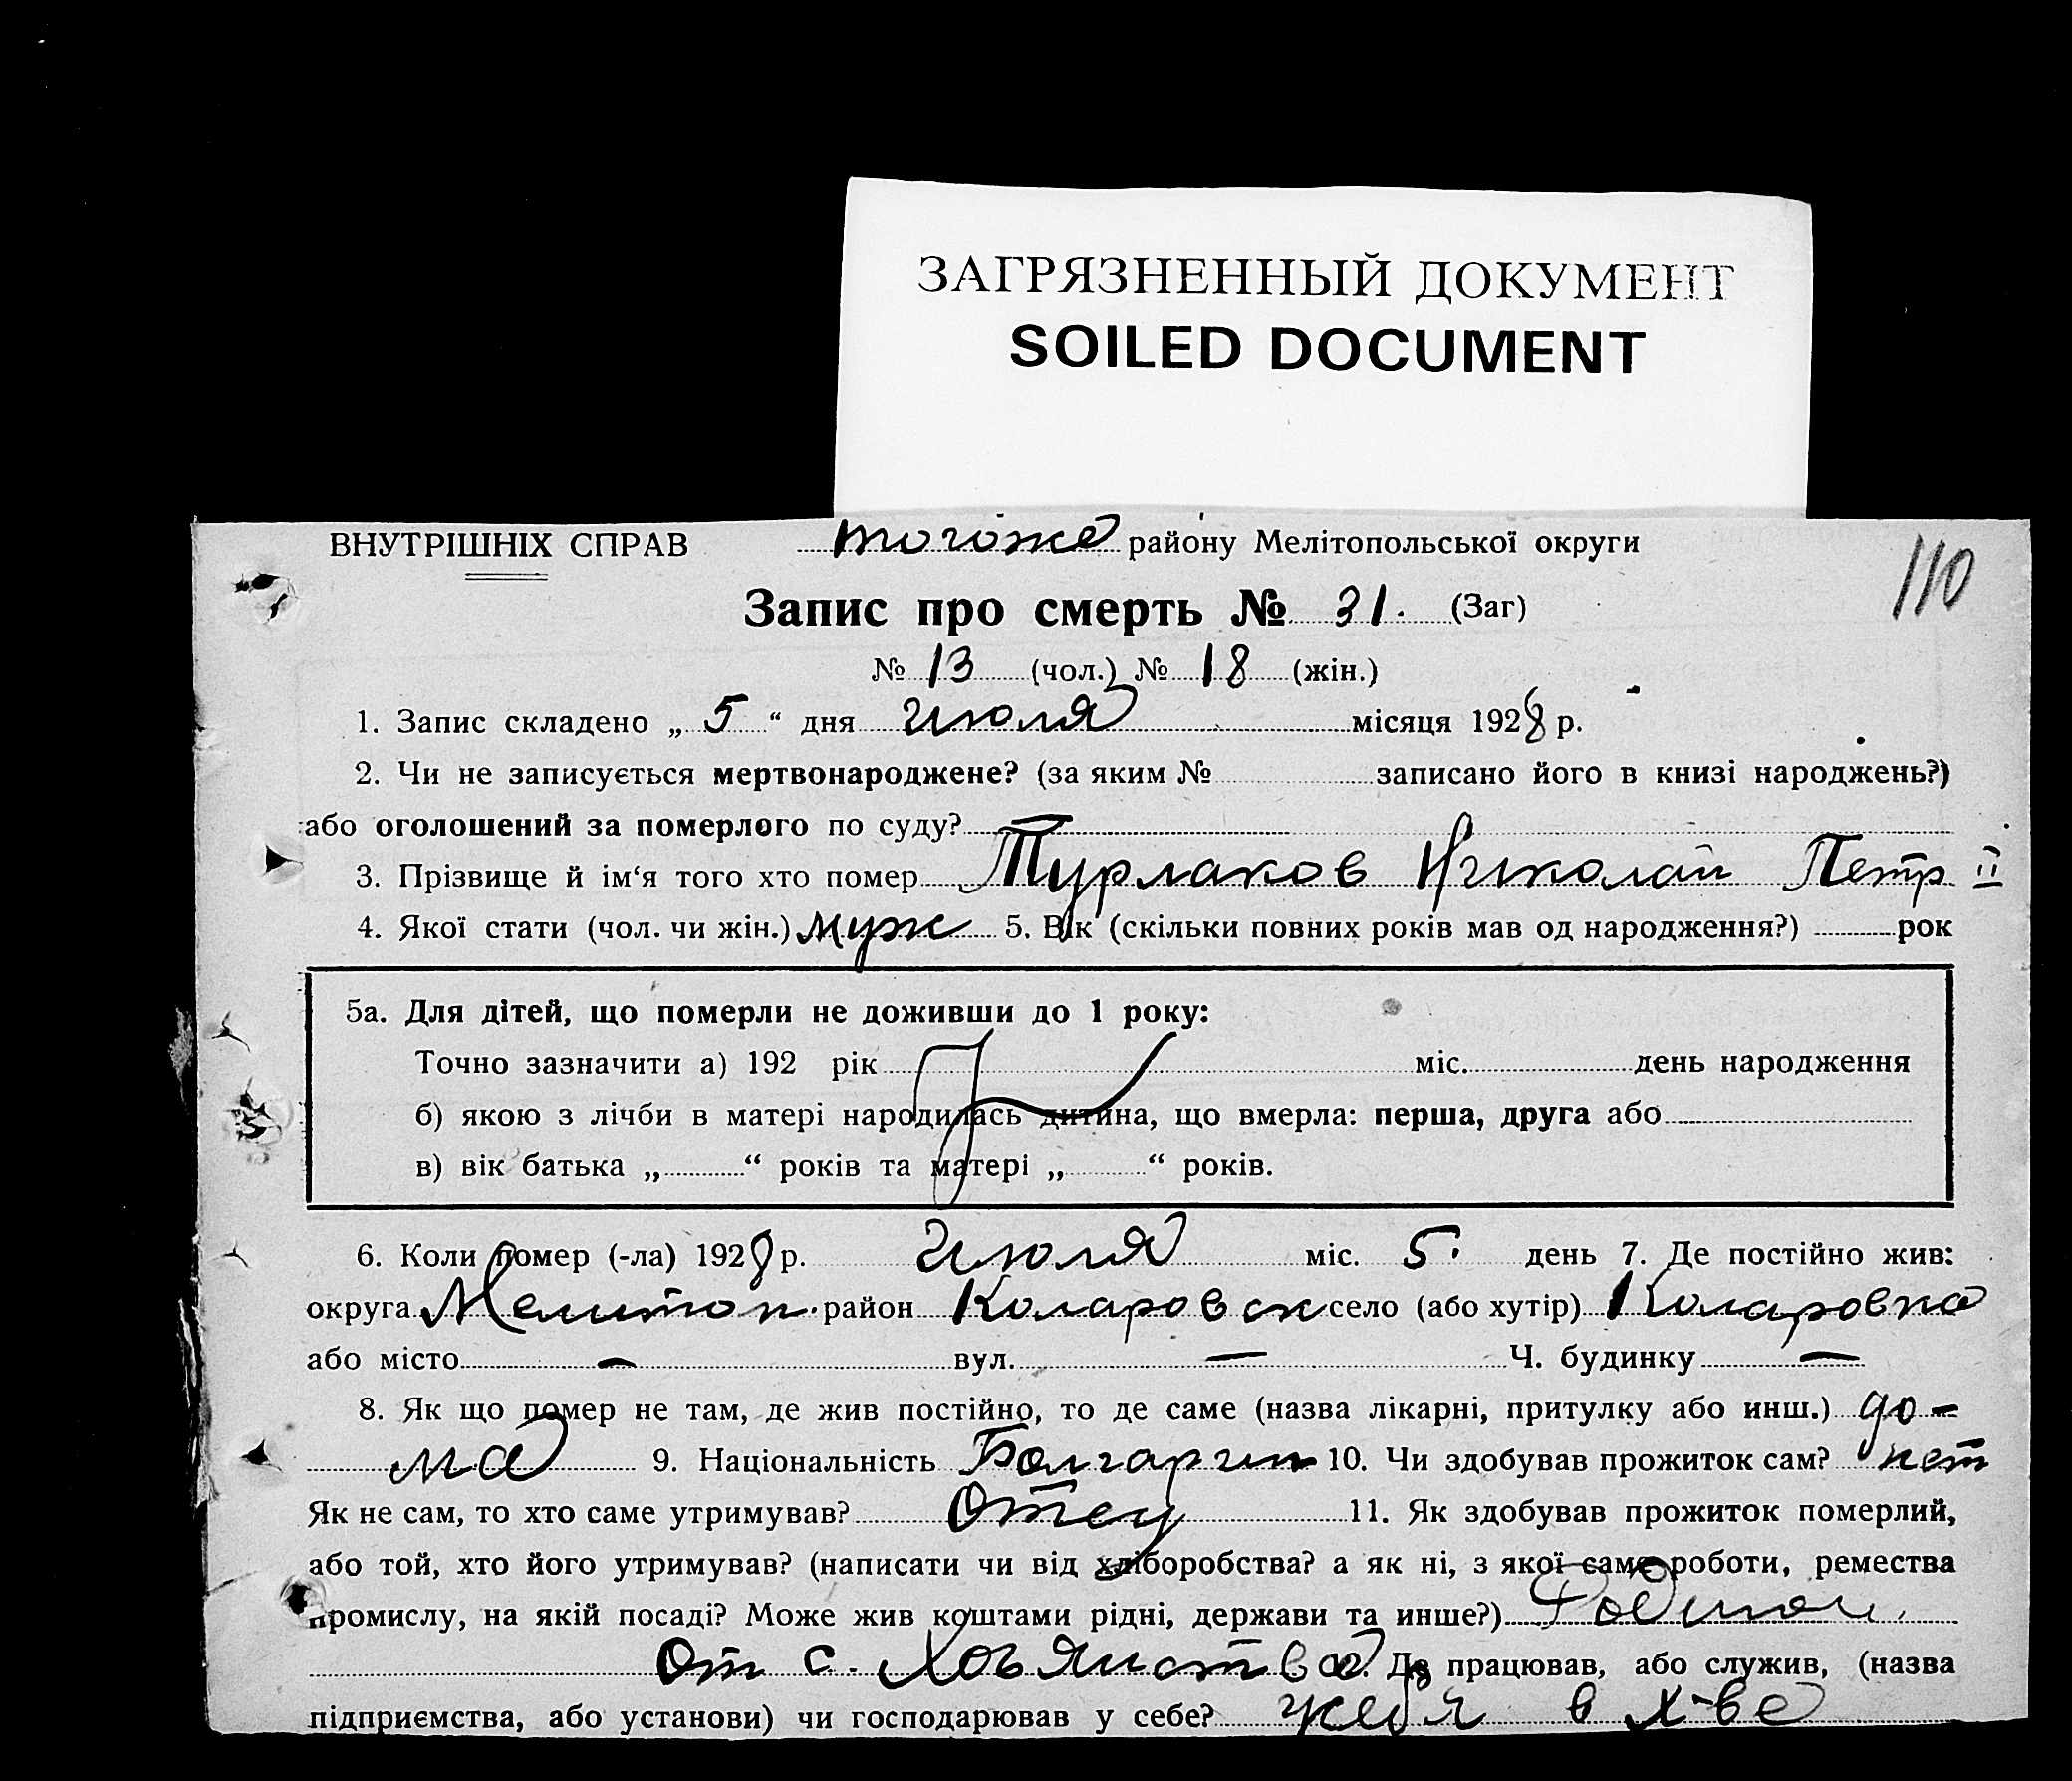 ЗАГРЯЗНЕННЫЙ ДОКУМЕНТ
SOILED DOCUMENT
ВНУТРІШНІХ СПРАВ тогоже району Мелітопольської округи
110
Запис про смерть № 31. (Заг)
№ 13 (чол.) № 18 (жін.)
1. Запис складено „ 5 “ дня Июля місяця 1928 р.
2. Чи не записується мертвонароджене? (за яким № записано його в книзі народжень?)
або оголошений за померлого по суду? —
3. Прізвище й ім‘я того хто помер Турлаков Николай Петр
4. Якої стати (чол. чи жін.) муж 5. Вік (скільки повних років мав од народження?) рок
5а. Для дітей, що померли не доживши до 1 року:
Точно зазначити а) 192 рік міс. день народження
б) якою з лічби в матері народилась дитина, що вмерла: перша, друга або
в) вік батька „ “ років та матері „ “ років.
6. Коли помер (-ла) 1928 р. Июля міс. 5. день 7. Де постійно жив:
округа Мелитоп. район Коларовск село (або хутір) Коларовка
або місто — вул. — Ч. будинку —
8. Як що помер не там, де жив постійно, то де саме (назва лікарні, притулку або инш.) до-
ма 9. Національність Болгарин 10. Чи здобував прожиток сам? нет
Як не сам, то хто саме утримував? Отец 11. Як здобував прожиток померлий,
або той, хто його утримував? (написати чи від хліборобства? а як ні, з якої саме роботи, ремества
промислу, на якій посаді? Може жив коштами рідні, держави та инше?)
От с. Хозяйства. Де працював, або служив, (назва
підприємства, або установи) чи господарював у себе? у себя в х-ве